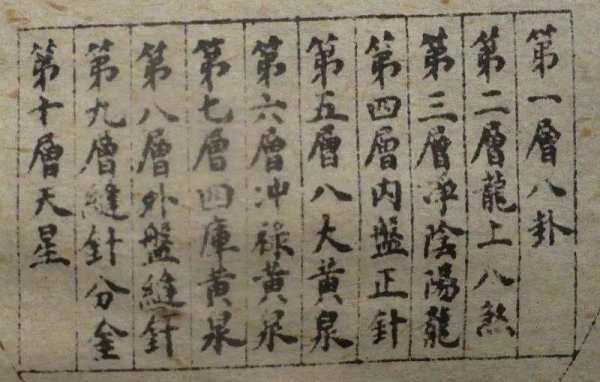 第一層八卦
第二層龍上八煞
第三層净陰陽龍
第四層内盤正針
第五層八大黄泉
第六層冲祿黄泉
第七層四庫黄泉
第八層外盤縫針
第九層縫針分金
第十層天星